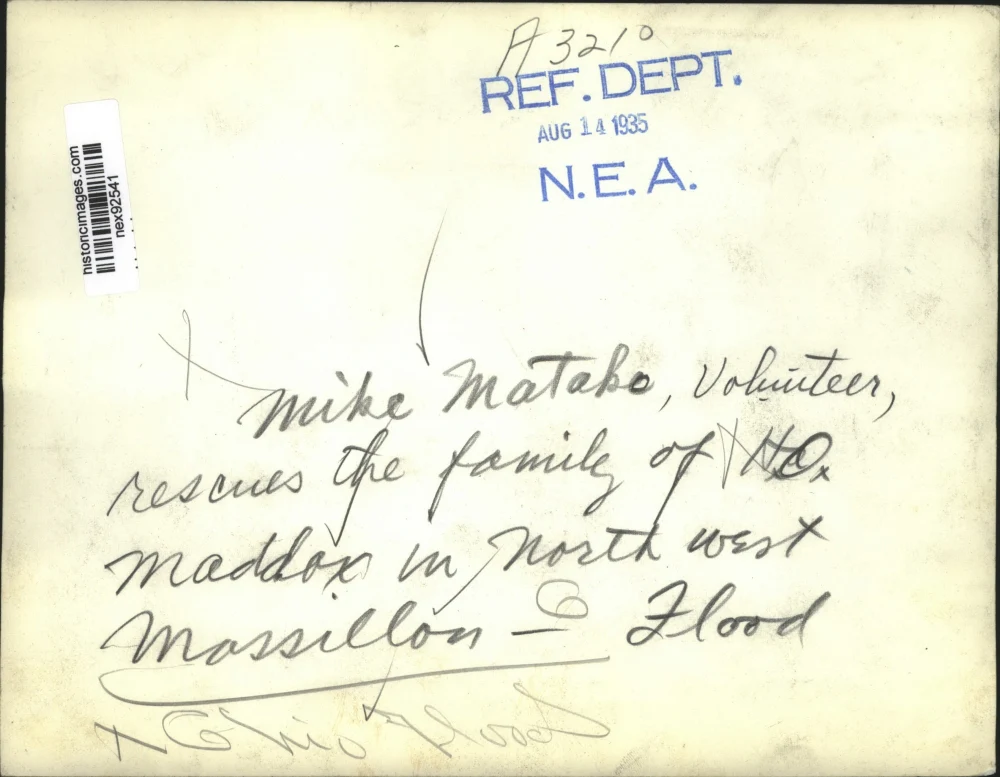 A3210
REF. DEPT.
AUG 14 1935
N. E. A.
historicimages.com
nex92541
Mike Matako, Volunteer,
rescues the family of H.O.
Maddox in North west
Massillon — O Flood
x Ohio Flood